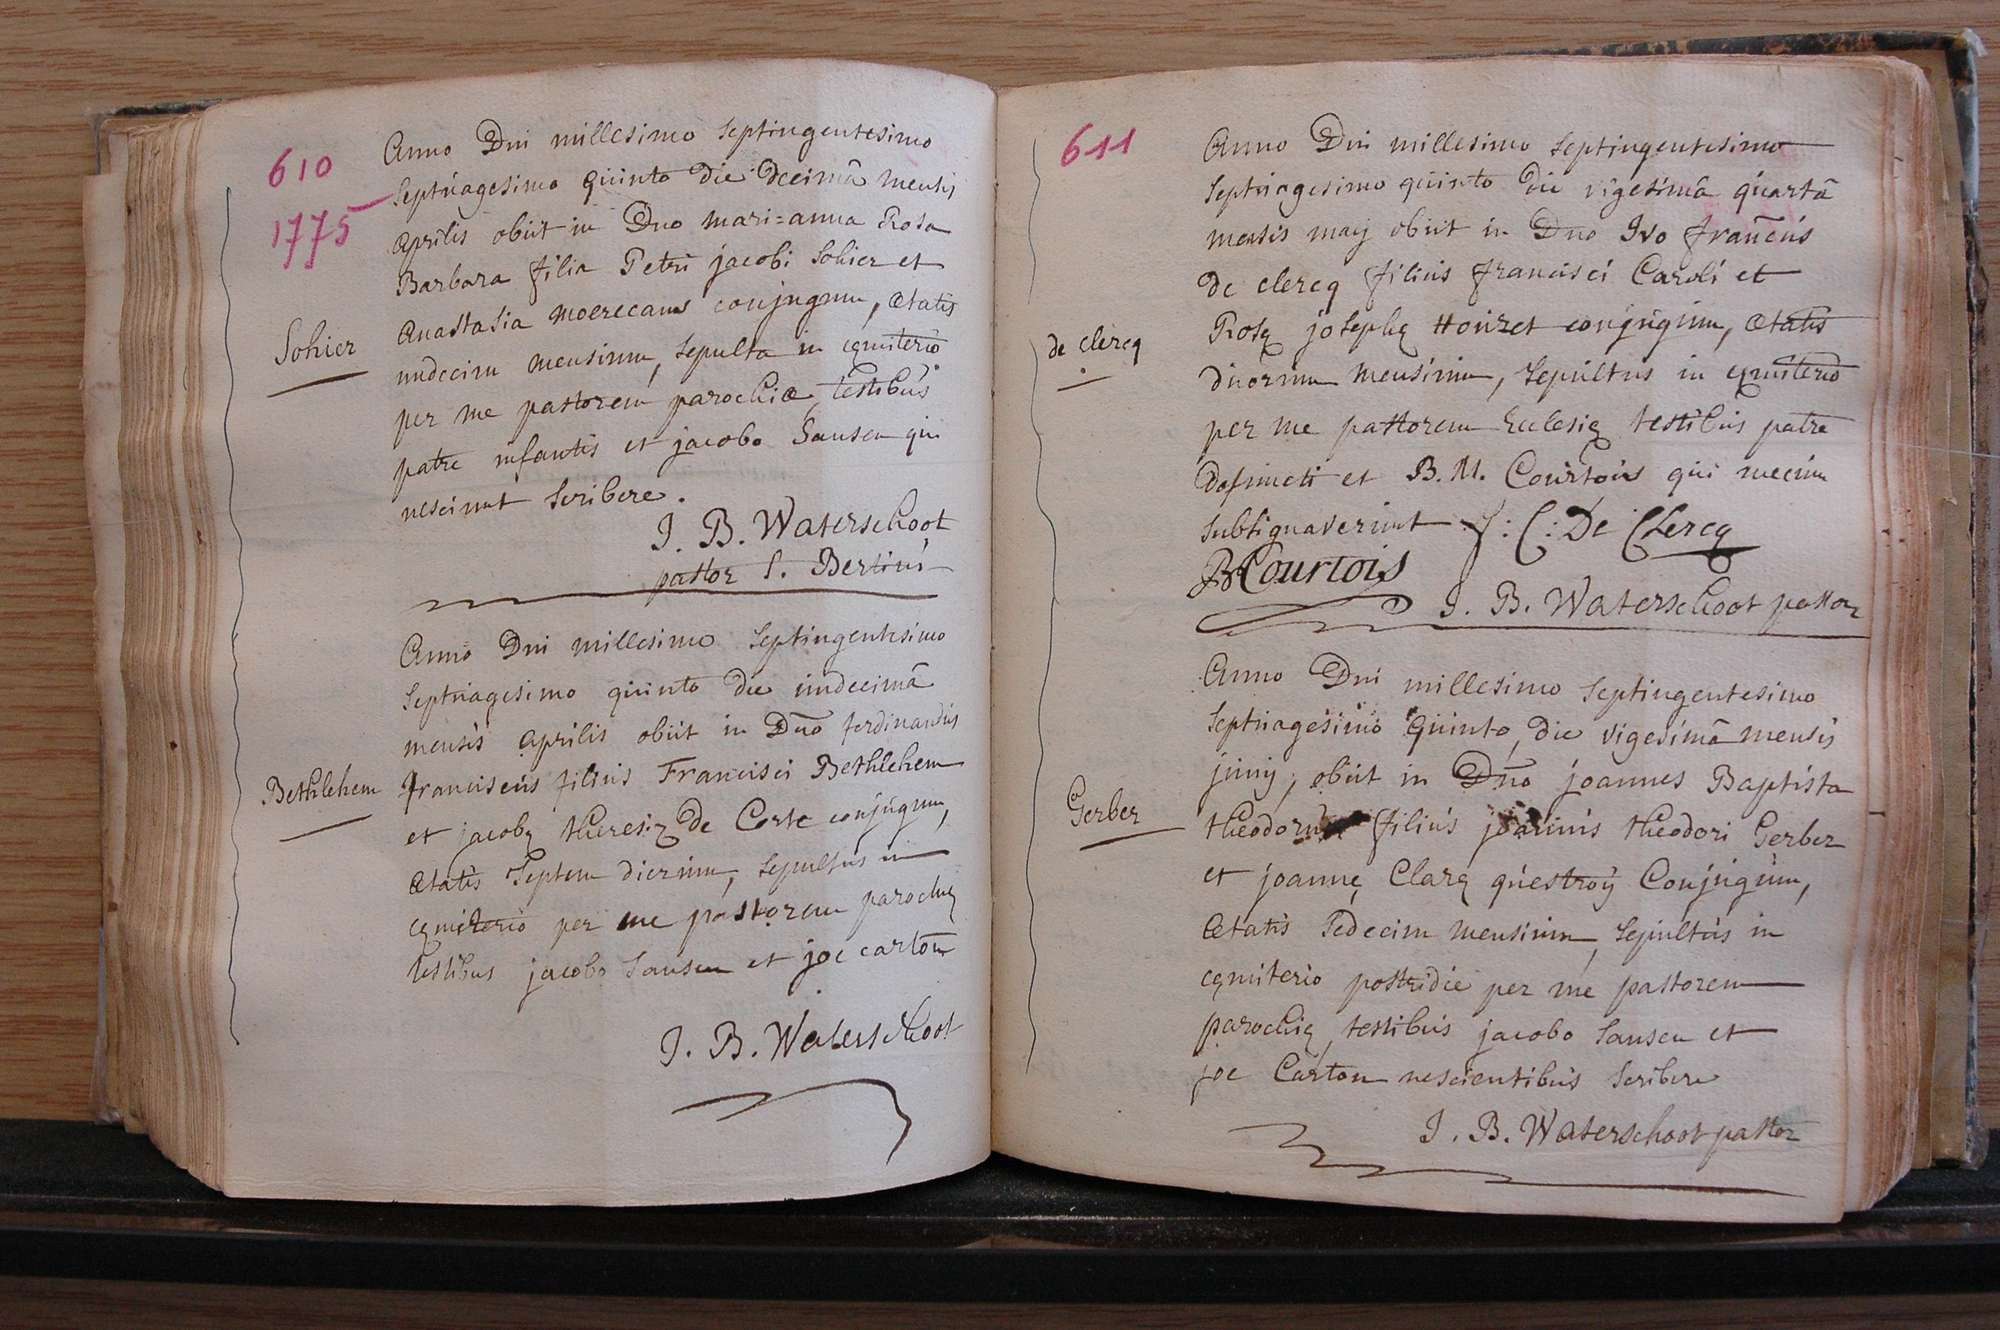 610
1775
Anno Dni millesimo septingentesimo
septuagesimo quinto die decimâ mensis
aprilis obiit in Dno mari=anna Rosa
Barbara filia Petri jacobi Sohier et
Sohier
anastasia moerecans conjugum, ætatis
undecim mensium, sepulta in cęmiterio
per me pastorem parochiæ, testibus
patre infantis et jacobo Sansen qui
nesciunt scribere.
J. B. Waterschoot
pastor S. Bertini
Anno Dni millesimo septingentesimo
septuagesimo quinto die undecimâ
mensis aprilis obiit in Dno ferdinandus
Bethlehem
franciscus filius Francisci Bethlehem
et jacobę theresię de Corte conjugum,
ætatis septem dierum, sepultus in
cęmiterio per me pastorem parochię
testibus jacobo Sansen et joe carton
J. B. Waterschoot
611
Anno Dni millesimo septingentesimo
septuagesimo quinto die vigesimâ quartâ
mensis maij obiit in Dno Ivo francus
de clercq filius francisci Caroli et
de clercq
Rosę josephę Houzet conjugum, ætatis
duorum mensium, sepultus in cęmiterio
per me pastorem Ecclesię testibus patre
defuncti et B. M. Courtois qui mecum
subsignaverunt f: C: De Clercq
BCourtois
J. B. Waterschoot pastor
Anno Dni millesimo septingentesimo
septuagesimo quinto, die vigesimâ mensis
junij, obiit in Dno joannes Baptista
Gerber
theodorus filius joannis theodori Gerber
et joannę Clarę questroÿ Conjugum,
ætatis sedecim mensium, sepultus in
cęmiterio postridie per me pastorem
parochię, testibus jacobo Sansen et
joe Carton nescientibus scribere
J. B. Waterschoot pastor